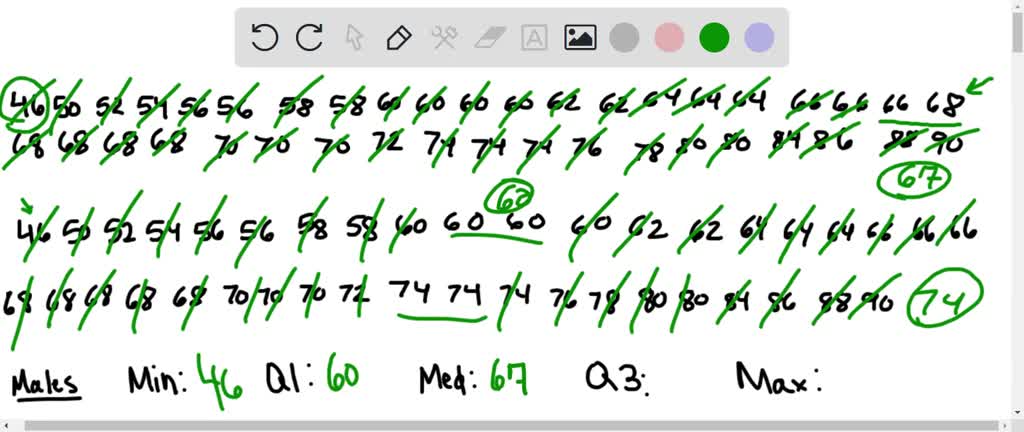 A
46 50 52 54 56 56 58 58 60 60 60 60 62 62 64 64 64 66 66 66 68
68 68 68 68 70 70 70 72 74 74 74 76 78 80 80 84 86 88 90
67
60
46 50 52 54 56 56 58 58 60 60 60 60 62 62 64 64 64 66 66 66
68 68 68 68 68 70 70 70 72 74 74 74 76 78 80 80 84 86 88 90 74
Males Min: 46 Q1: 60 Med: 67 Q3: Max: